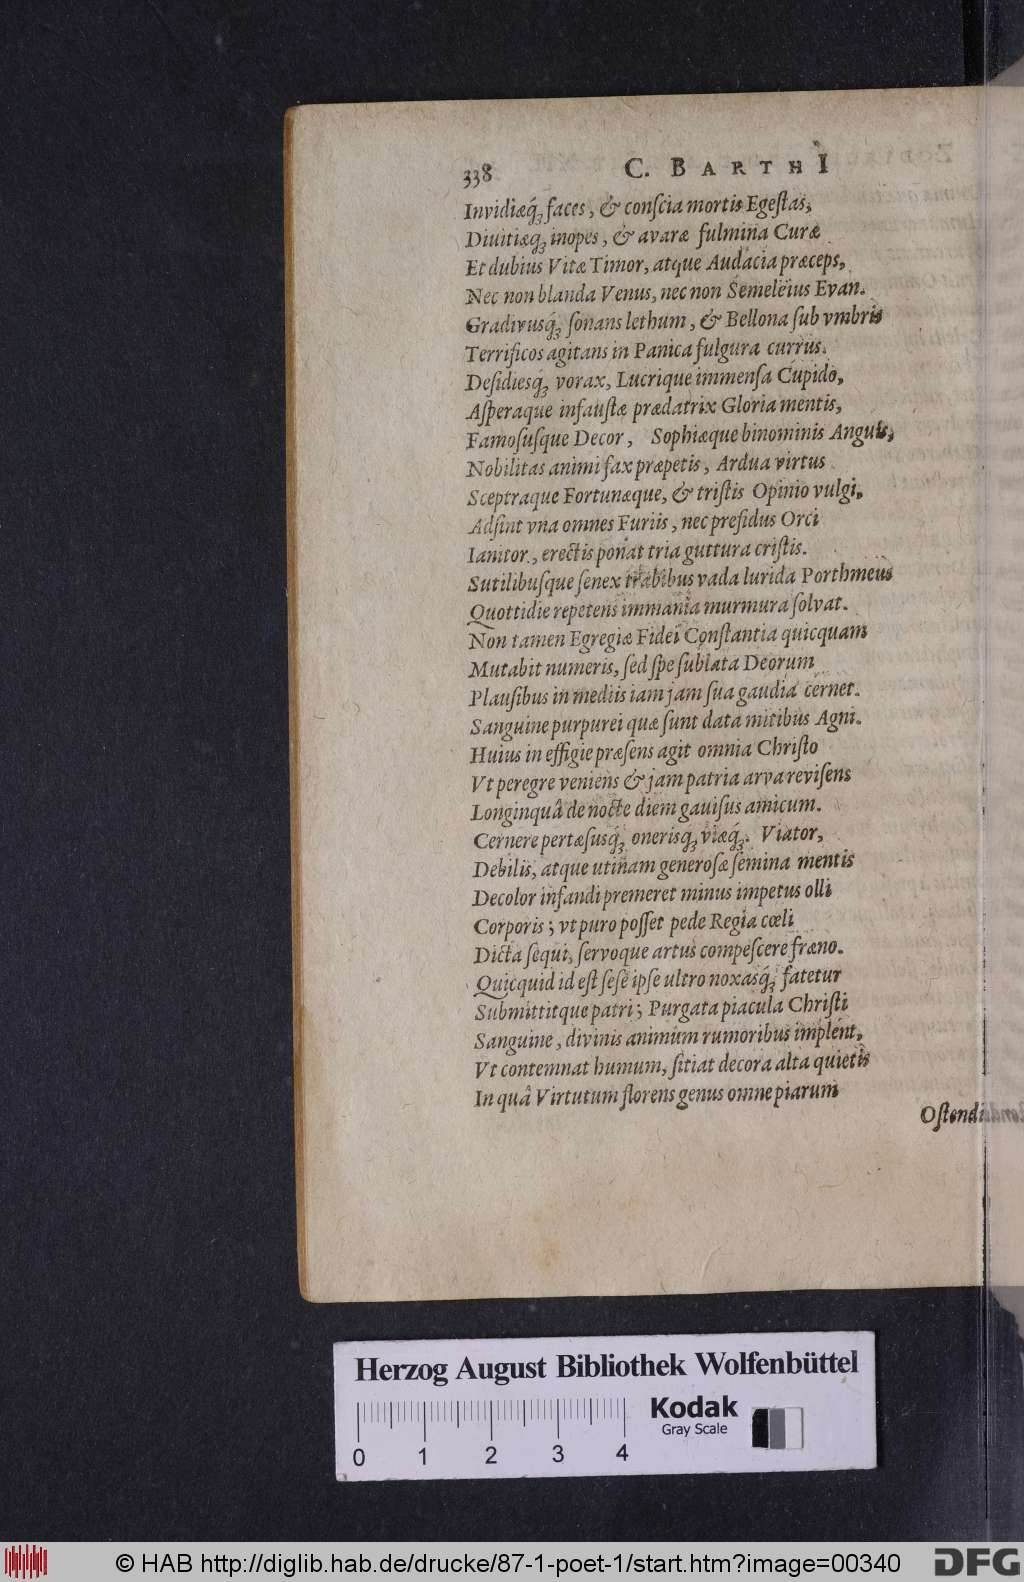 338 C. BARTHI
Invidiæq́ꝫ faces, & conſcia mortis Egeſtas,
Diuitiæq́ꝫ inopes, & avaræ fulmina Curæ
Et dubius Vitæ Timor, atque Audacia præceps,
Nec non blanda Venus, nec non Semeleïus Evan.
Gradivusq́ꝫ ſonans lethum, & Bellona ſub vmbris
Terrificos agitans in Panica fulgura currus.
Deſidiesq́ꝫ vorax, Lucrique immenſa Cupido,
Aſperaque infauſtæ prædatrix Gloria mentis,
Famoſuſque Decor, Sophiæque binominis Anguis,
Nobilitas animi fax præpetis, Ardua virtus
Sceptraque Fortunæque, & triſtis Opinio vulgi,
Adſint vna omnes Furiis, nec preſidus Orci
Ianitor, erectis ponat tria guttura criſtis.
Sutilibuſque ſenex trabibus vada lurida Porthmeus
Quottidie repetens immania murmura ſolvat.
Non tamen Egregiæ Fidei Conſtantia quicquam
Mutabit numeris, ſed ſpe ſublata Deorum
Plauſibus in mediis iam jam ſua gaudia cernet.
Sanguine purpurei quæ ſunt data mitibus Agni.
Huius in effigie præſens agit omnia Chriſto
Vt peregre veniens & jam patria arva reviſens
Longinquâ de nocte diem gauiſus amicum.
Cernere pertæſusq́ꝫ onerisq́ꝫ viæq́ꝫ. Viator,
Debilis, atque utinam generoſæ ſemina mentis
Decolor infandi premeret minus impetus olli
Corporis; vt puro poſſet pede Regia cœli
Dicta ſequi, ſervoque artus compeſcere fræno.
Quicquid id eſt ſeſe ipſe ultro noxasq́ꝫ fatetur
Submittitque patri; Purgata piacula Chriſti
Sanguine, divinis animum rumoribus implént,
Vt contemnat humum, ſitiat decora alta quietis
In quâ Virtutum florens genus omne piarum
Oſtendi
Herzog August Bibliothek Wolfenbüttel
0 1 2 3 4
Kodak
Gray Scale
© HAB http://diglib.hab.de/drucke/87-1-poet-1/start.htm?image=00340
DFG